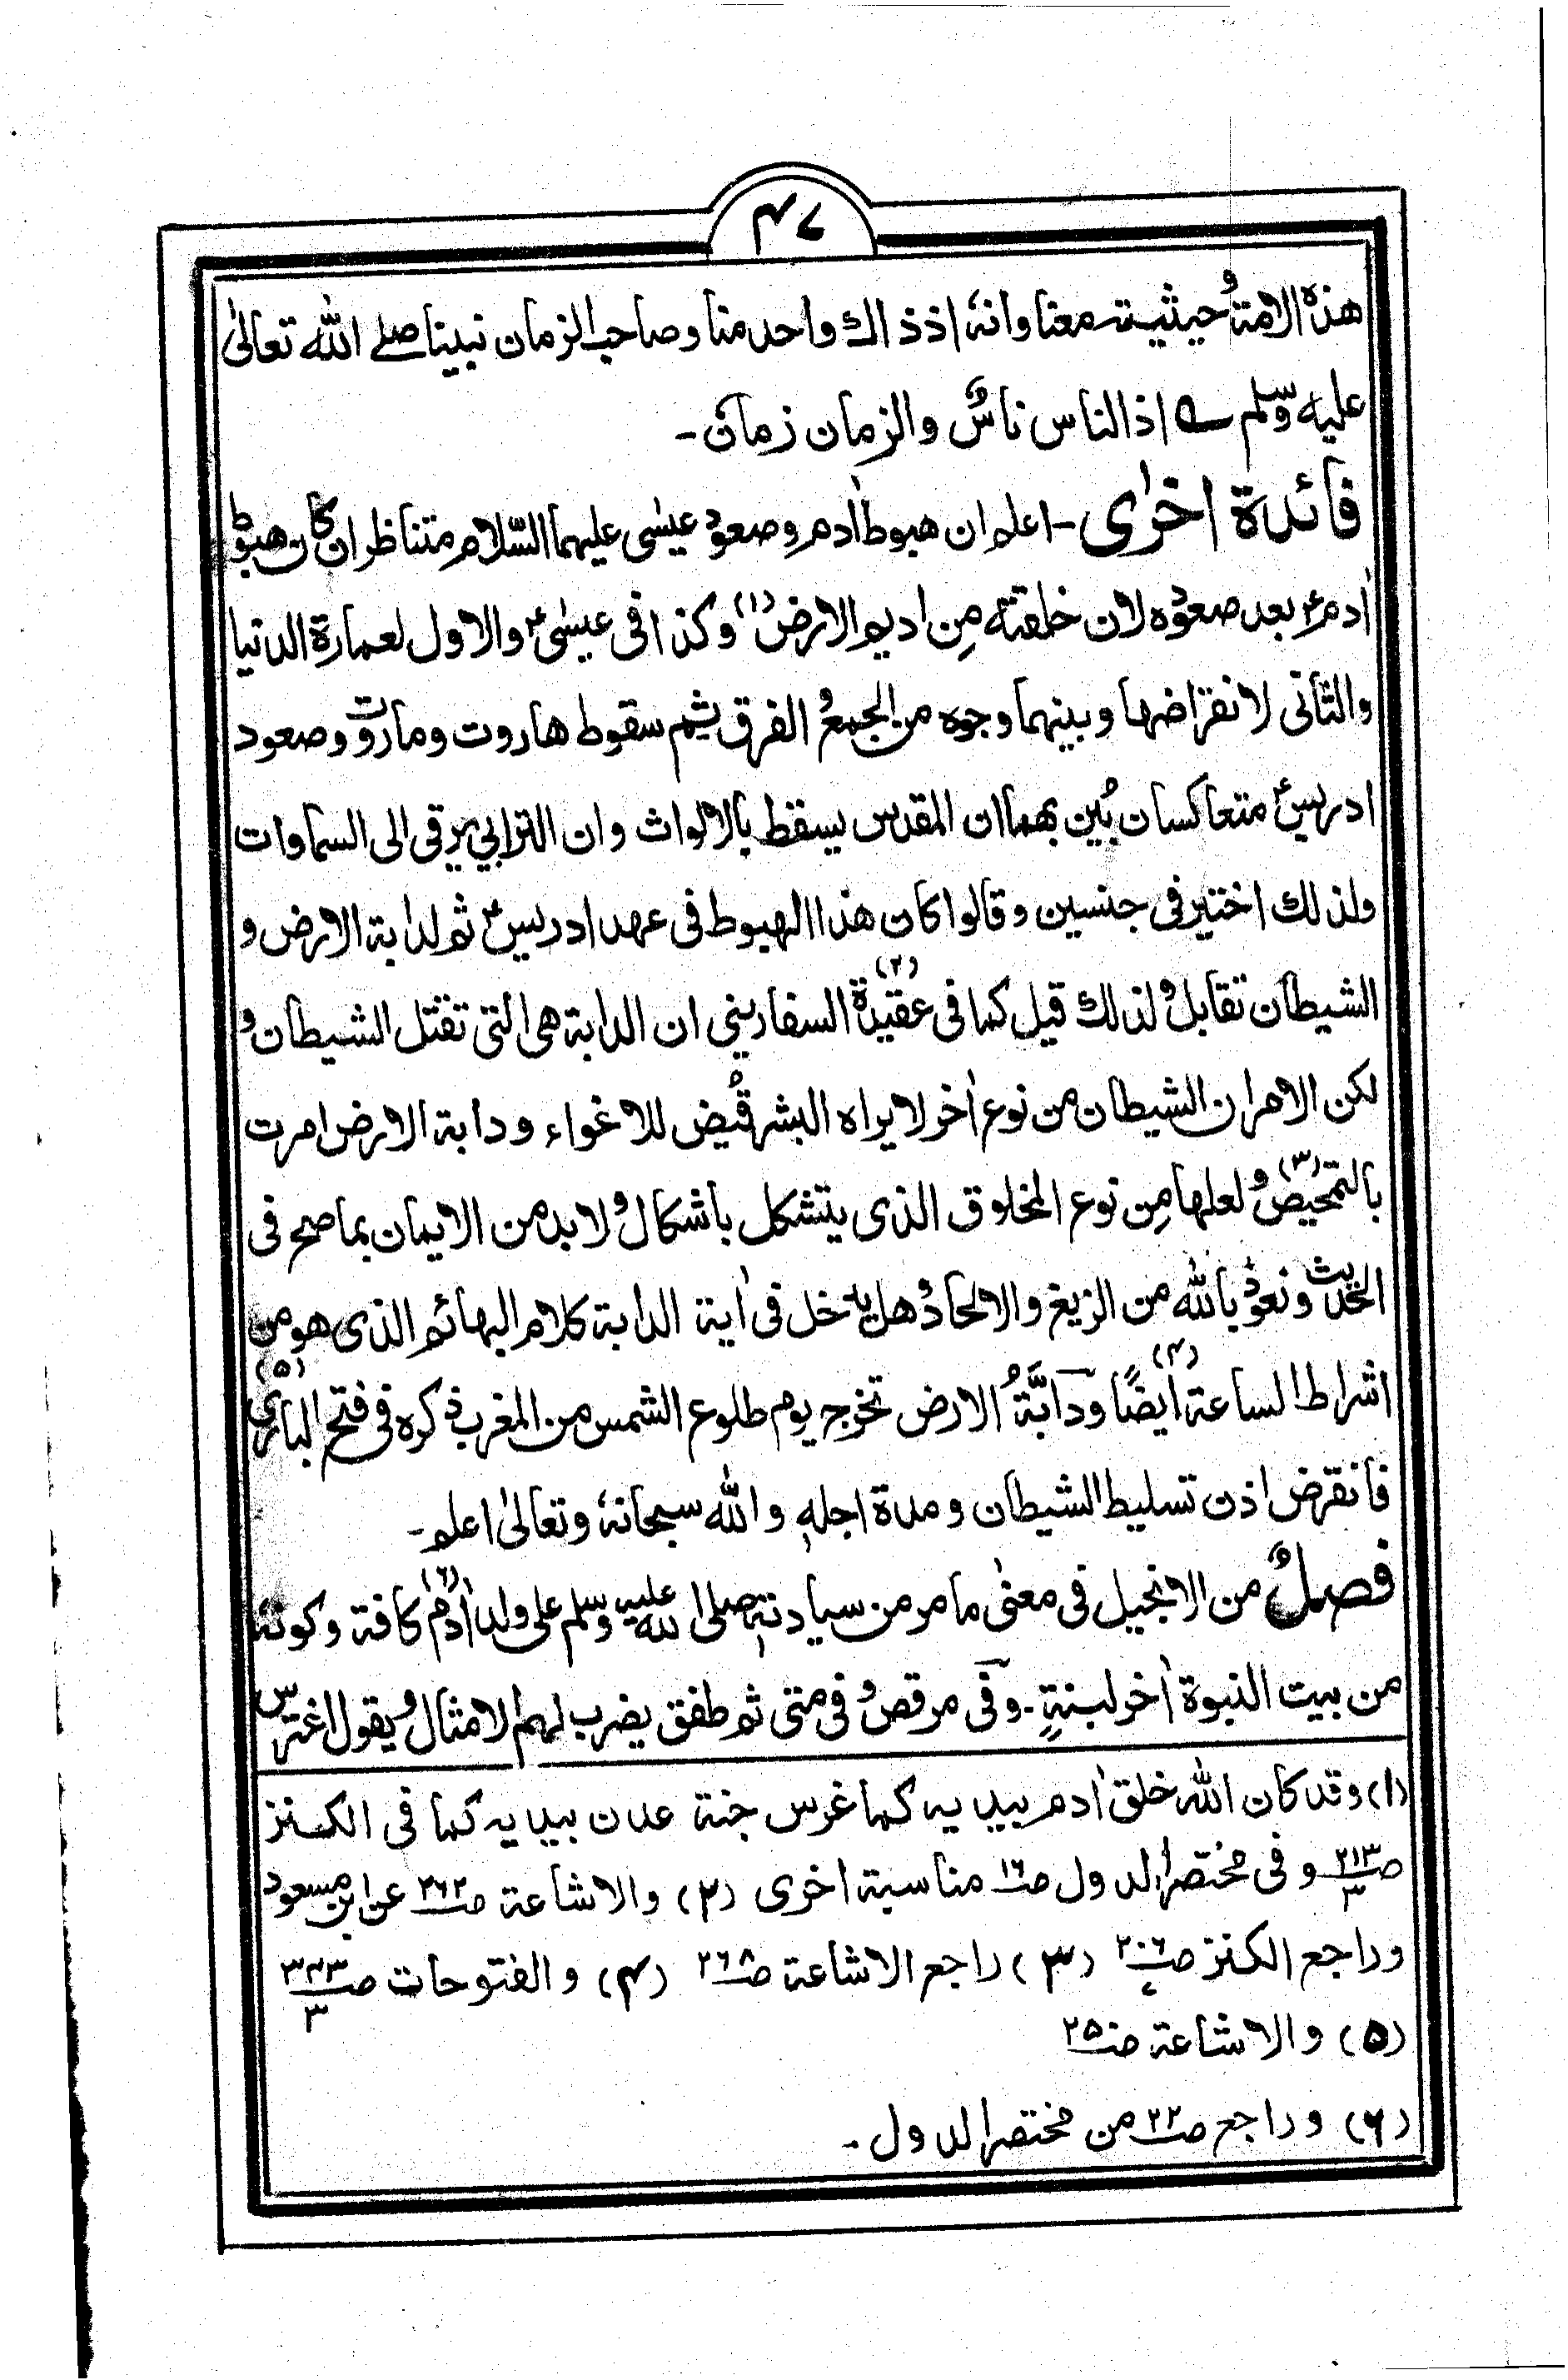 ۴۷
هذه الامة وحيثيته معنا وانهٗ اذ ذاك واحد منا وصاحب الزمان نبينا صلے الله تعالىٰ
عليه وسلم ؎ اذ الناس ناسٌ والزمان زمانٌ۔
فائدة اخرٰى ۔ اعلم ان هبوط اٰدم وصعود عيسٰى عليهما السّلام متناظران كان هبوط
اٰدمؑ بعد صعوده لان خلقته مِن اديم الارض (۱) وكذا فى عيسٰىؑ والاول لعمارة الدنيا
والثانى لانقراضها وبينهما وجوه من الجمع و الفرق ثم سقوط هاروت وماروت وصعود
ادريسؑ متعاكسان بُيِن بهما ان المقدس يسقط بالالواث وان الترابي يرقى الى السماوات
ولذلك اختير فى جنسين وقالوا كان هذا الهبوط فى عهد ادريسؑ ثم لدابة الارض و
الشيطان تقابل و لذلك قيل كما فى عقيدة (۲) السفاريني ان الدابة هى التى تقتل الشيطان و
لكن الامر ان الشيطان من نوع اٰخر لا يراه البشر قُيِض للاغواء ودابة الارض امرت
بالتمحيص (۳) و لعلها مِن نوع المخلوق الذى يتشكل باشكال و لا بد من الايمان بما صح فى
الحديث و نعوذ بالله من الزيغ والالحاد وهل يدخل فى اٰية الدابة كلام البهائم الذى هو من
اشراط الساعة (۴) ايضًا ودآبَّةُ الارض تخرج يوم طلوع الشمس من المغرب ذكره فى فتح البارى (۵)
فانقرض اذن تسليط الشيطان ومدة اجلهٖ والله سبحانهٗ وتعالىٰ اعلم۔
فصلٌ من الانجيل فى معنى ما مر من سيادتهٖ صلى الله عليه وسلم على ولد اٰدم (۶) كافة وكونهٗ
من بيت النبوة اٰخر لبنةٍ ۔ وفى مرقص و فى متى ثم طفق يضرب لهم الامثال و يقول اغترس
(۱) وقد كان الله خلق اٰدم بيديه كما غرس جنة عدن بيديه كما فى الكنز
صـ ۲۱۳/۳ و فى مختصر الدول صـ۱۶ مناسبة اخرى (۲) والاشاعة صـ۲۶۲ عن ابن مسعود
وراجع الكنز صـ ۲۰۶/۷ (۳) راجع الاشاعة صـ۲۶۸ (۴) والفتوحات صـ ۳۴۳/۳
(۵) والاشاعة صـ۲۵
(۶) وراجع صـ۲۲ من مختصر الدول۔